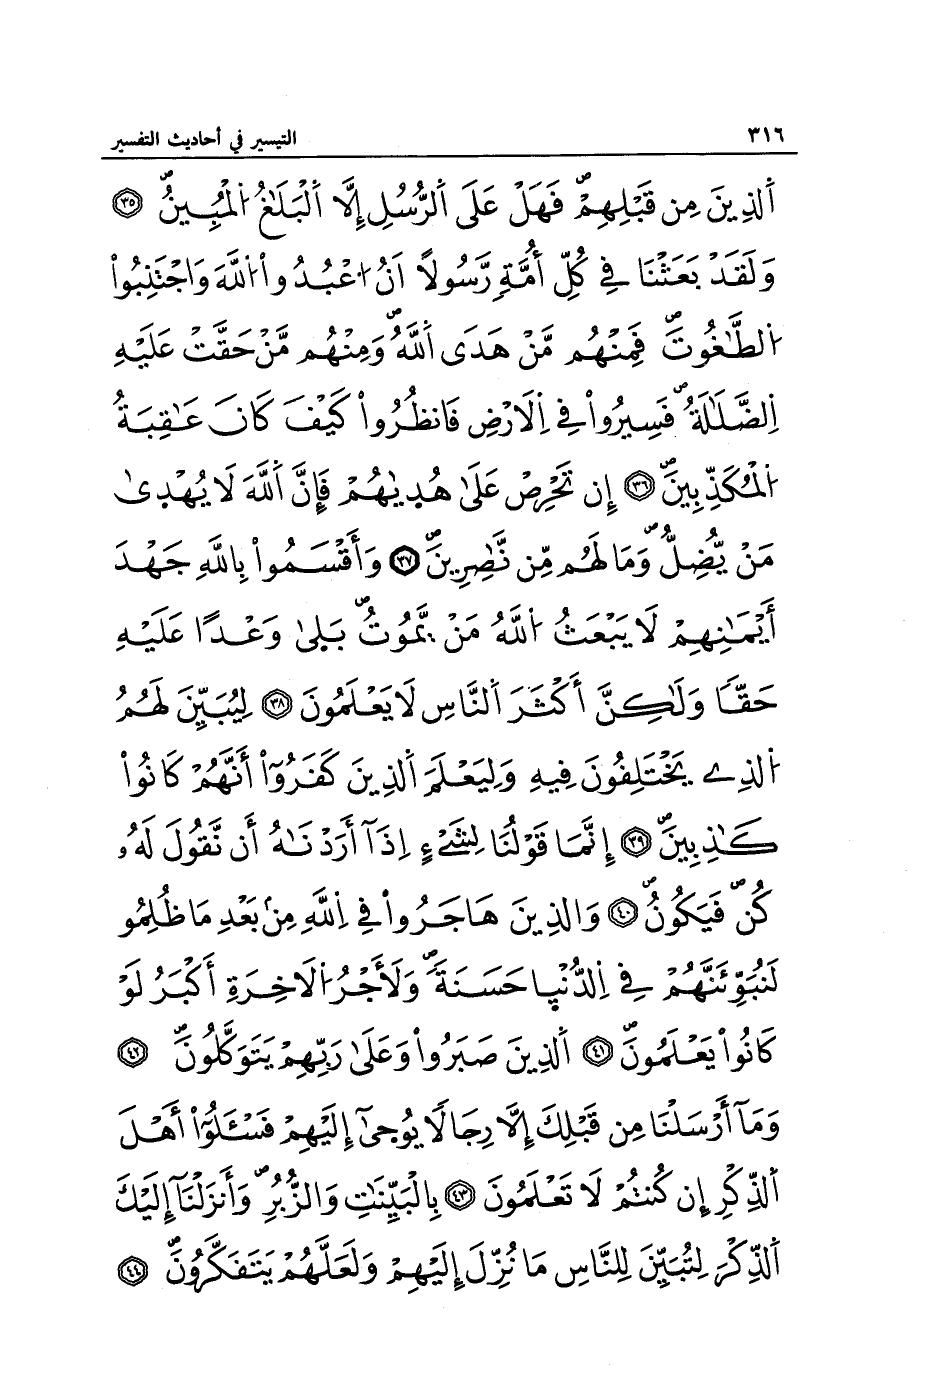 ٣١٦ التيسير في أحاديث التفسير
اَ۬لذِينَ مِن قَبْلِهِمْۖ فَهَلْ عَلَى اَ۬لرُّسُلِ إِلَّا اَ۬لْبَلَٰغُ اُ۬لْمُبِينُۖ ٣٥
وَلَقَدْ بَعَثْنَا فِي كُلِّ أُمَّةٖ رَّسُولاً اَنُ اُ۟عْبُدُواْ اُ۬للَّهَ وَاجْتَنِبُواْ
اُ۬لطَّٰغُوتَۖ فَمِنْهُم مَّنْ هَدَى اَ۬للَّهُۖ وَمِنْهُم مَّنْ حَقَّتْ عَلَيْهِ
اِ۬لضَّلَٰلَةُۖ فَسِيرُواْ فِي اِ۬لَارْضِ فَانظُرُواْ كَيْفَ كَانَ عَٰقِبَةُ
اُ۬لْمُكَذِّبِينَۖ ٣٦ إِن تَحْرِصْ عَلَىٰ هُدۭيٰهُمْ فَإِنَّ اَ۬للَّهَ لَا يُهْدَىٰ
مَنْ يُّضِلُّۖ وَمَا لَهُم مِّن نَّٰصِرِينَۖ ٣٧ وَأَقْسَمُواْ بِاللَّهِ جَهْدَ
أَيْمَٰنِهِمْ لَا يَبْعَثُ اُ۬للَّهُ مَنْ يَّمُوتُۖ بَلَىٰ وَعْداً عَلَيْهِ
حَقّاٗ وَلَٰكِنَّ أَكْثَرَ اَ۬لنَّاسِ لَا يَعْلَمُونَ ٣٨ لِيُبَيِّنَ لَهُمُ
اُ۬لذِے يَخْتَلِفُونَ فِيهِ وَلِيَعْلَمَ اَ۬لذِينَ كَفَرُوٓاْ أَنَّهُمْ كَانُواْ
كَٰذِبِينَۖ ٣٩ إِنَّمَا قَوْلُنَا لِشَےْءٍ اِذَآ أَرَدْنَٰهُ أَن نَّقُولَ لَهُۥ
كُنۖ فَيَكُونُۖ ٤٠ وَالذِينَ هَاجَرُواْ فِي اِ۬للَّهِ مِنۢ بَعْدِ مَا ظُلِمُو
لَنُبَوِّئَنَّهُمْ فِي اِ۬لدُّنْيۭا حَسَنَةٗۖ وَلَأَجْرُ اُ۬لَاخِرَةِ أَكْبَرُ لَوْ
كَانُواْ يَعْلَمُونَۖ ٤١ اَ۬لذِينَ صَبَرُواْ وَعَلَىٰ رَبِّهِمْ يَتَوَكَّلُونَۖ ٤٢
وَمَآ أَرْسَلْنَا مِن قَبْلِكَ إِلَّا رِجَالاٗ يُوحَىٰٓ إِلَيْهِمْ فَسْـَٔلُوٓاْ أَهْلَ
اَ۬لذِّكْرِ إِن كُنتُمْ لَا تَعْلَمُونَ ٤٣ بِالْبَيِّنَٰتِ وَالزُّبُرِۖ وَأَنزَلْنَآ إِلَيْكَ
اَ۬لذِّكْرَ لِتُبَيِّنَ لِلنَّاسِ مَا نُزِّلَ إِلَيْهِمْ وَلَعَلَّهُمْ يَتَفَكَّرُونَۖ ٤٤